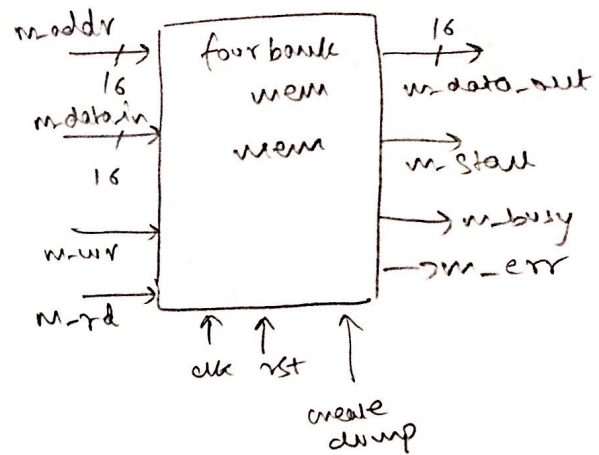 m_addr
16
m_data_in
16
m_wr
m_rd
four bank
mem
mem
16
m_data_out
m_stall
m_busy
m_err
clk rst
create
dump